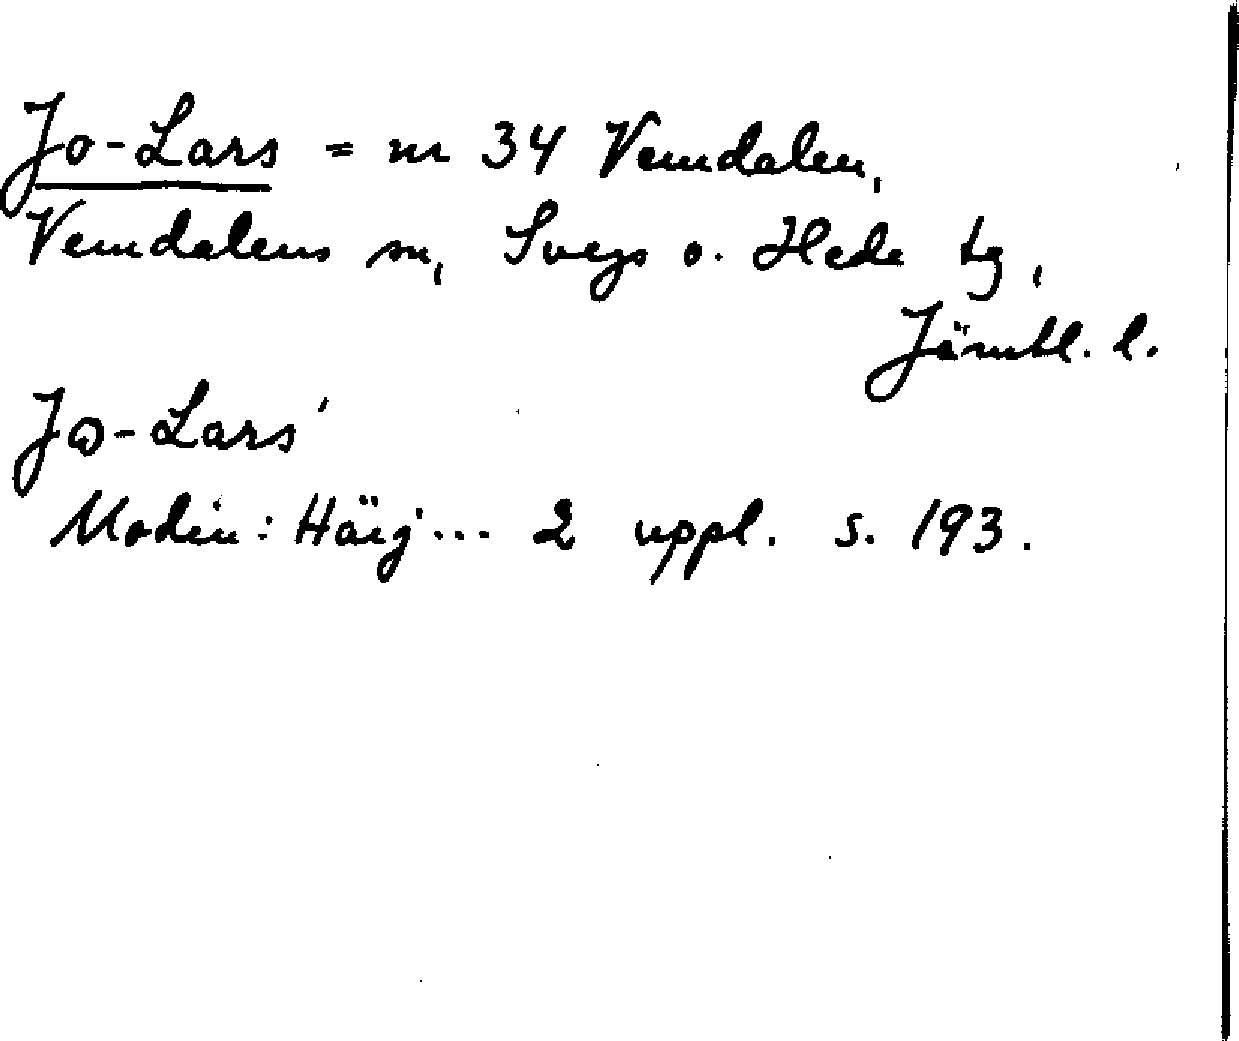 Jo-Lars = nr 34 Vemdalen,
Vemdalens sn, Svegs o. Hede tg,
Jämtl. l.
Jo-Lars'
Modin: Härj... 2 uppl. s. 193.